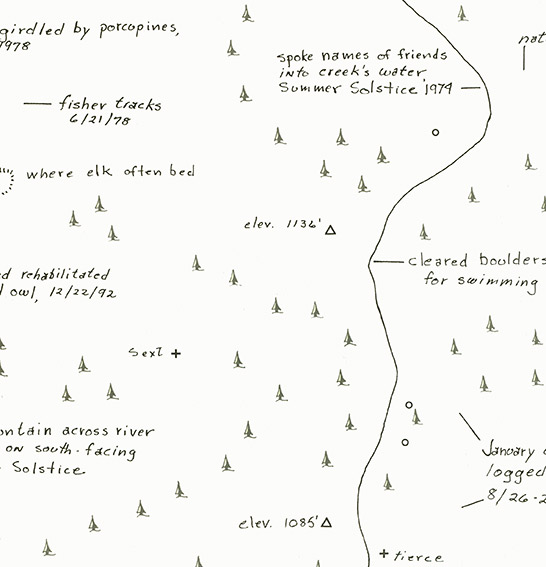 girdled by porcupines,
1978
spoke names of friends
into creek's water,
Summer Solstice '1974
fisher tracks
6/21/78
where elk often bed
elev. 1136'
cleared boulders
for swimming
rehabilitated
owl, 12/22/92
Sext +
across river
on south-facing
Solstice
January
logged
8/26-2
elev. 1085'
+ tierce